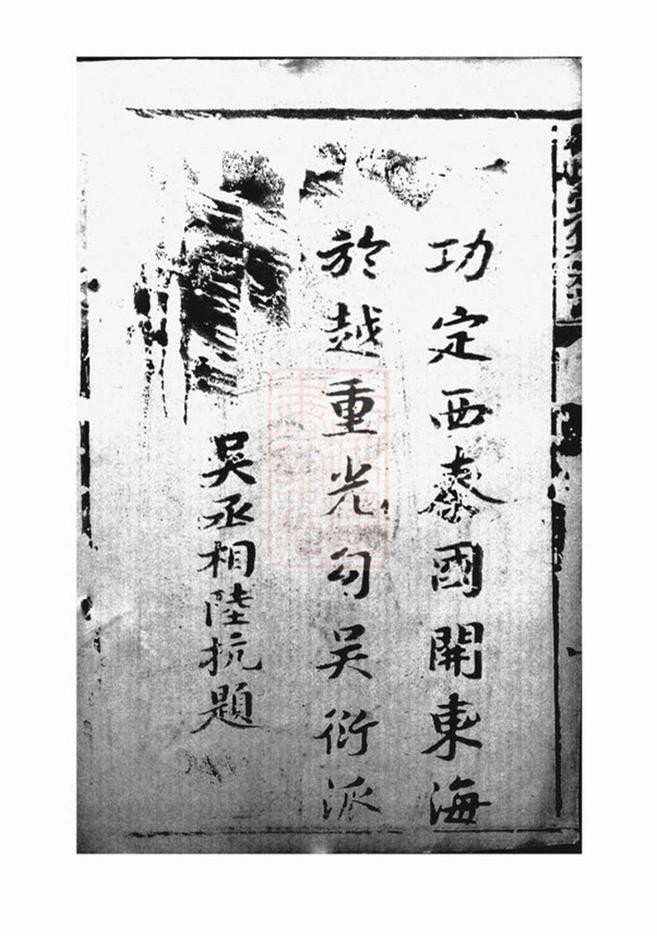 功定西秦國開東海
於越重光勾吳衍派
吳丞相陸抗題